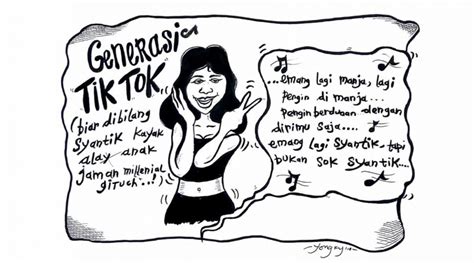 Generasi
TIK TOK
(biar dibilang
syantik kayak
alay anak
jaman millenial
gituch..!)
...emang lagi manja, lagi
Pengin di manja...
Pengin berduaan dengan
dirimu Saja....
emang lagi syantik, tapi
bukan sok syantik...